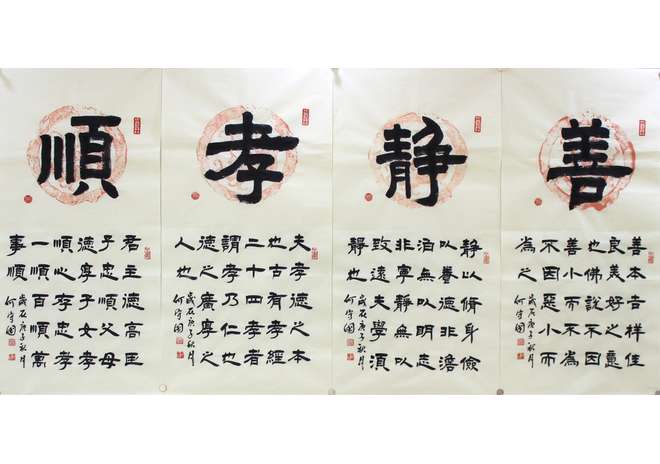 善
善本吉祥佳
良美好之意
也佛說不因
善小而不為
不因惡小而
為之
歲在庚子秋月
何守國
静
靜以脩身儉
以善德非澹
泊無以明志
非寧靜無以
致遠夫學須
靜也
歲在庚子秋月
何守國
孝
夫孝德之本
也古有孝經
二十四孝者
謂孝乃仁也
德之廣尊之
人也
歲在庚子秋月
何守國
順
君主德高臣
子忠順父母
德尊子女孝
順心存忠孝
一順百順萬
事順
歲在庚子秋月
何守國